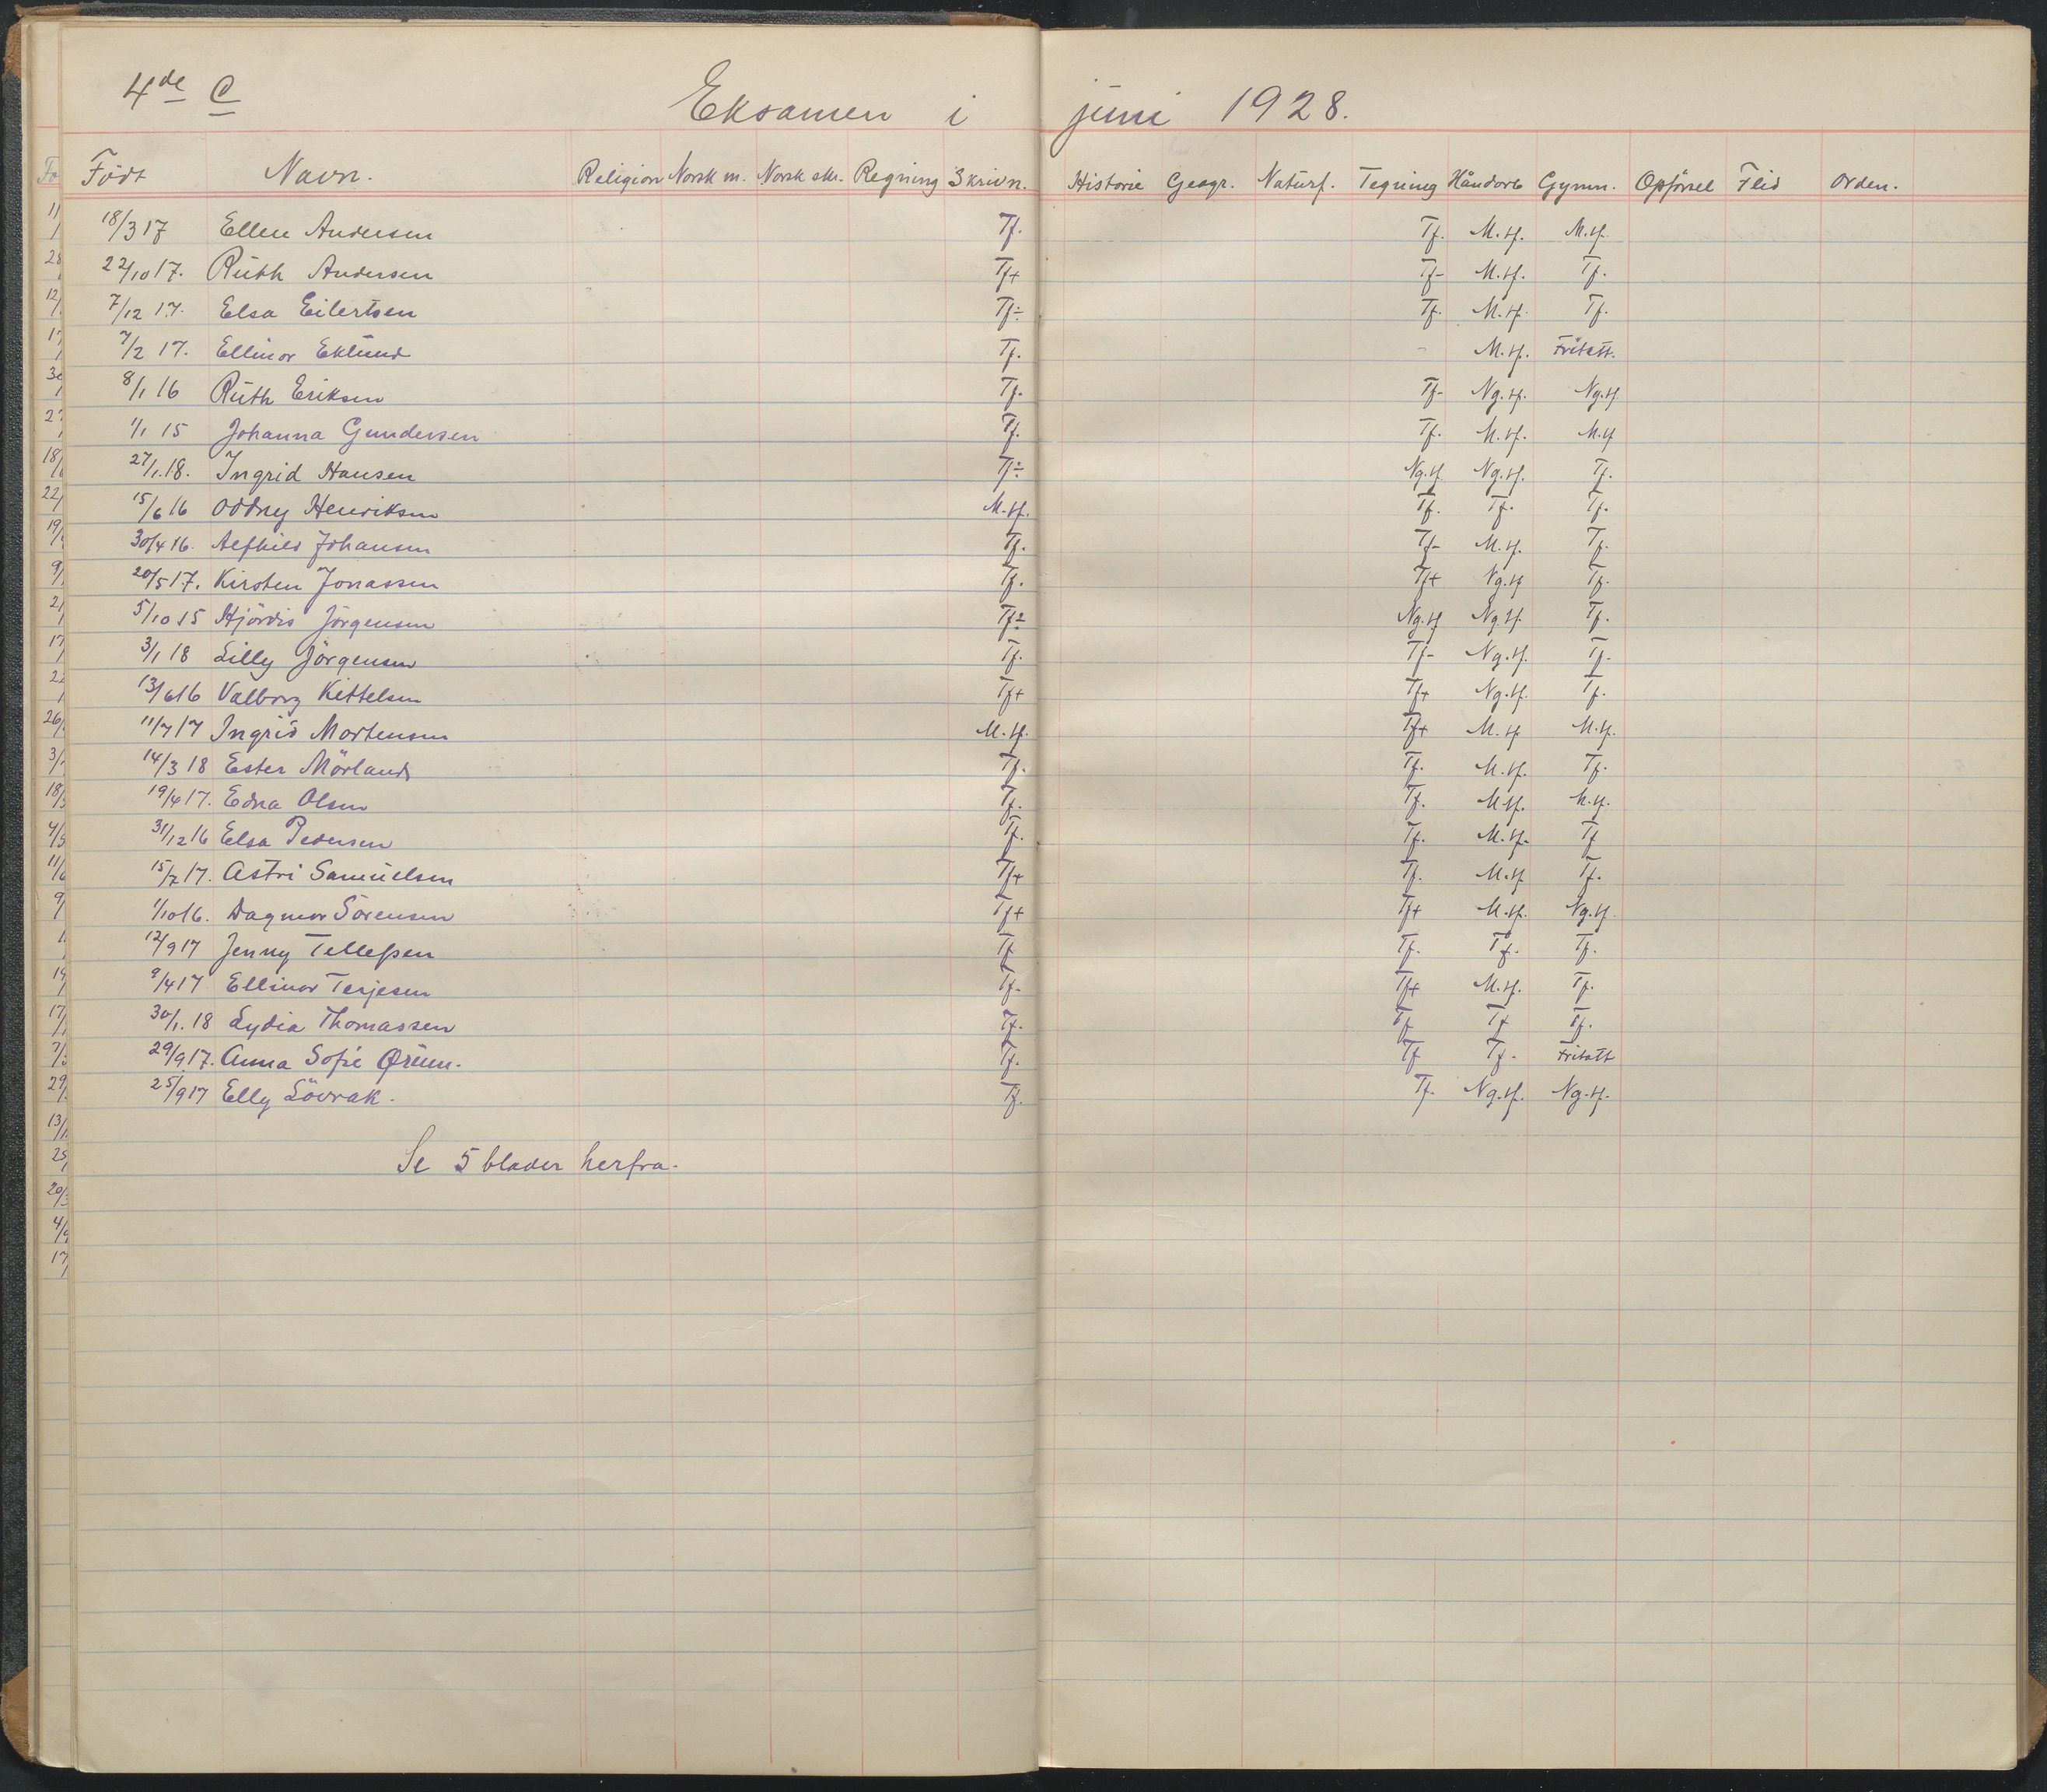 4de C Eksamen i juni 1928.
Født Navn. Religion Norsk m. Norsk skr. Regning Skrivn. Historie Geogr. Naturf. Tegning Håndarb Gymn. Opförsel Flid Orden.
18/3 17 Ellen Andersen Tf. Tf. M.tf. M.tf.
22/10 17. Ruth Andersen Tf+ Tf- M.tf. Tf.
7/12 17. Elsa Eilertsen Tf÷ Tf. M.tf. Tf.
7/2 17. Ellinor Eklund Tf. - M.tf. Fritatt.
8/1 16 Ruth Eriksen Tf. Tf- Ng.tf. Ng.tf.
1/1 15 Johanna Gundersen Tf. Tf. M.tf. M.tf
27/1.18. Ingrid Hansen Tf÷ Ng.tf. Ng.tf. Tf.
15/6 16 Oddny Henriksen M.tf. Tf. Tf. Tf.
30/4 16. Alfhild Johansen Tf. Tf- M.tf. Tf.
20/5 17. Kirsten Jonassen Tf. Tf+ Ng.tf Tf.
5/10 15 Hjördis Jörgensen Tf÷ Ng.tf Ng.tf. Tf.
3/1 18 Lilly Jörgensen Tf. Tf- Ng.tf. Tf.
13/6 16 Valborg Kittelsen Tf+ Tf+ Ng.tf. Tf.
11/7 17 Ingrid Mortensen M.tf. Tf+ M.tf M.tf.
14/3 18 Ester Mörland Tf. Tf. M.tf. Tf.
19/4 17. Edna Olsen Tf. Tf. M.tf. M.tf.
31/12 16 Elsa Pedersen Tf. Tf. M.tf. Tf
15/7 17. Astri Samuelsen Tf+ Tf. M.tf Tf.
1/10 16. Dagmar Sörensen Tf+ Tf+ M.tf. Ng.tf.
12/9 17 Jenny Tellefsen Tf Tf. Tf. Tf.
9/4 17 Ellinor Terjesen Tf- Tf+ M.tf. Tf.
30/1. 18 Lydia Thomassen Tf. Tf Tf Tf.
29/9 17. Anna Sofie Øruen. Tf. Tf Tf. Fritatt
25/9 17 Elly Lövrak. Tf. Tf. Ng.tf. Ng.tf.
Se 5 blader herfra.